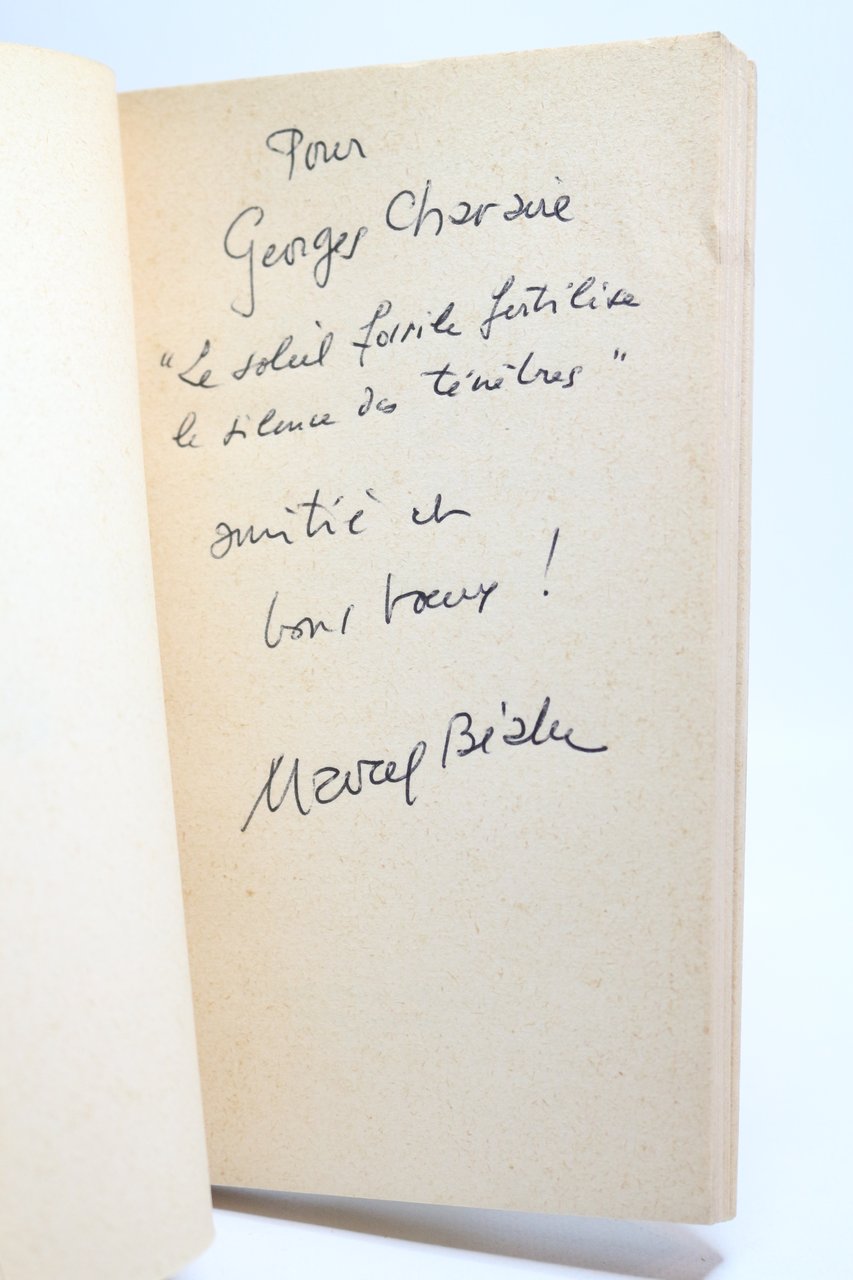 Pour
Georges Charaire
"Le soleil fossile fertilise
le silence des ténèbres"
amitié et
bons vœux !
Marcel Béalu